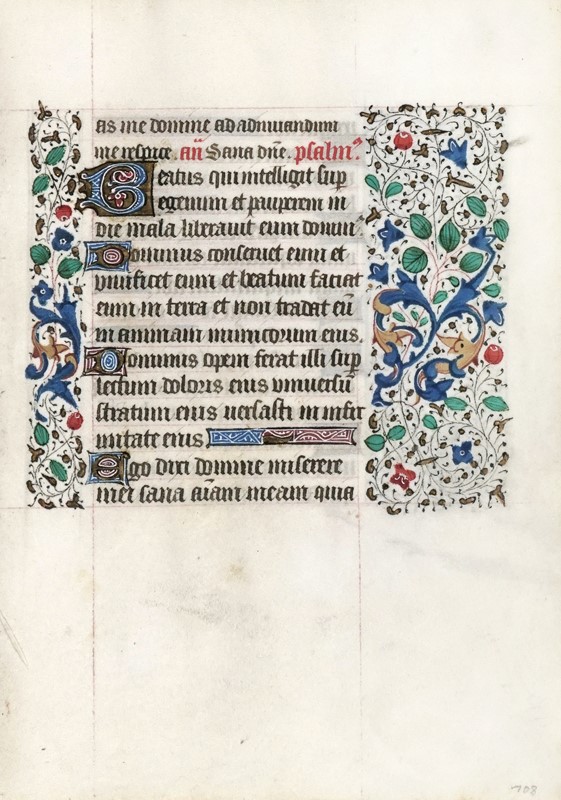 as me domine ad adiuuandum
me respice. an̄ Sana dn̄e. psalm⁹.
Beatus qui intelligit sup
egenum et pauperem in
die mala liberauit eum domin⁹.
Dominus conseruet eum et
uiuificet eum et beatum faciat
eum in terra et non tradat eū
in animam inimicorum eius.
Dominus opem ferat illi sup
lectum doloris eius vniuersū
stratum eius uersasti in infir
mitate eius
Ego dixi domine miserere
mei sana aīam meam quia
708